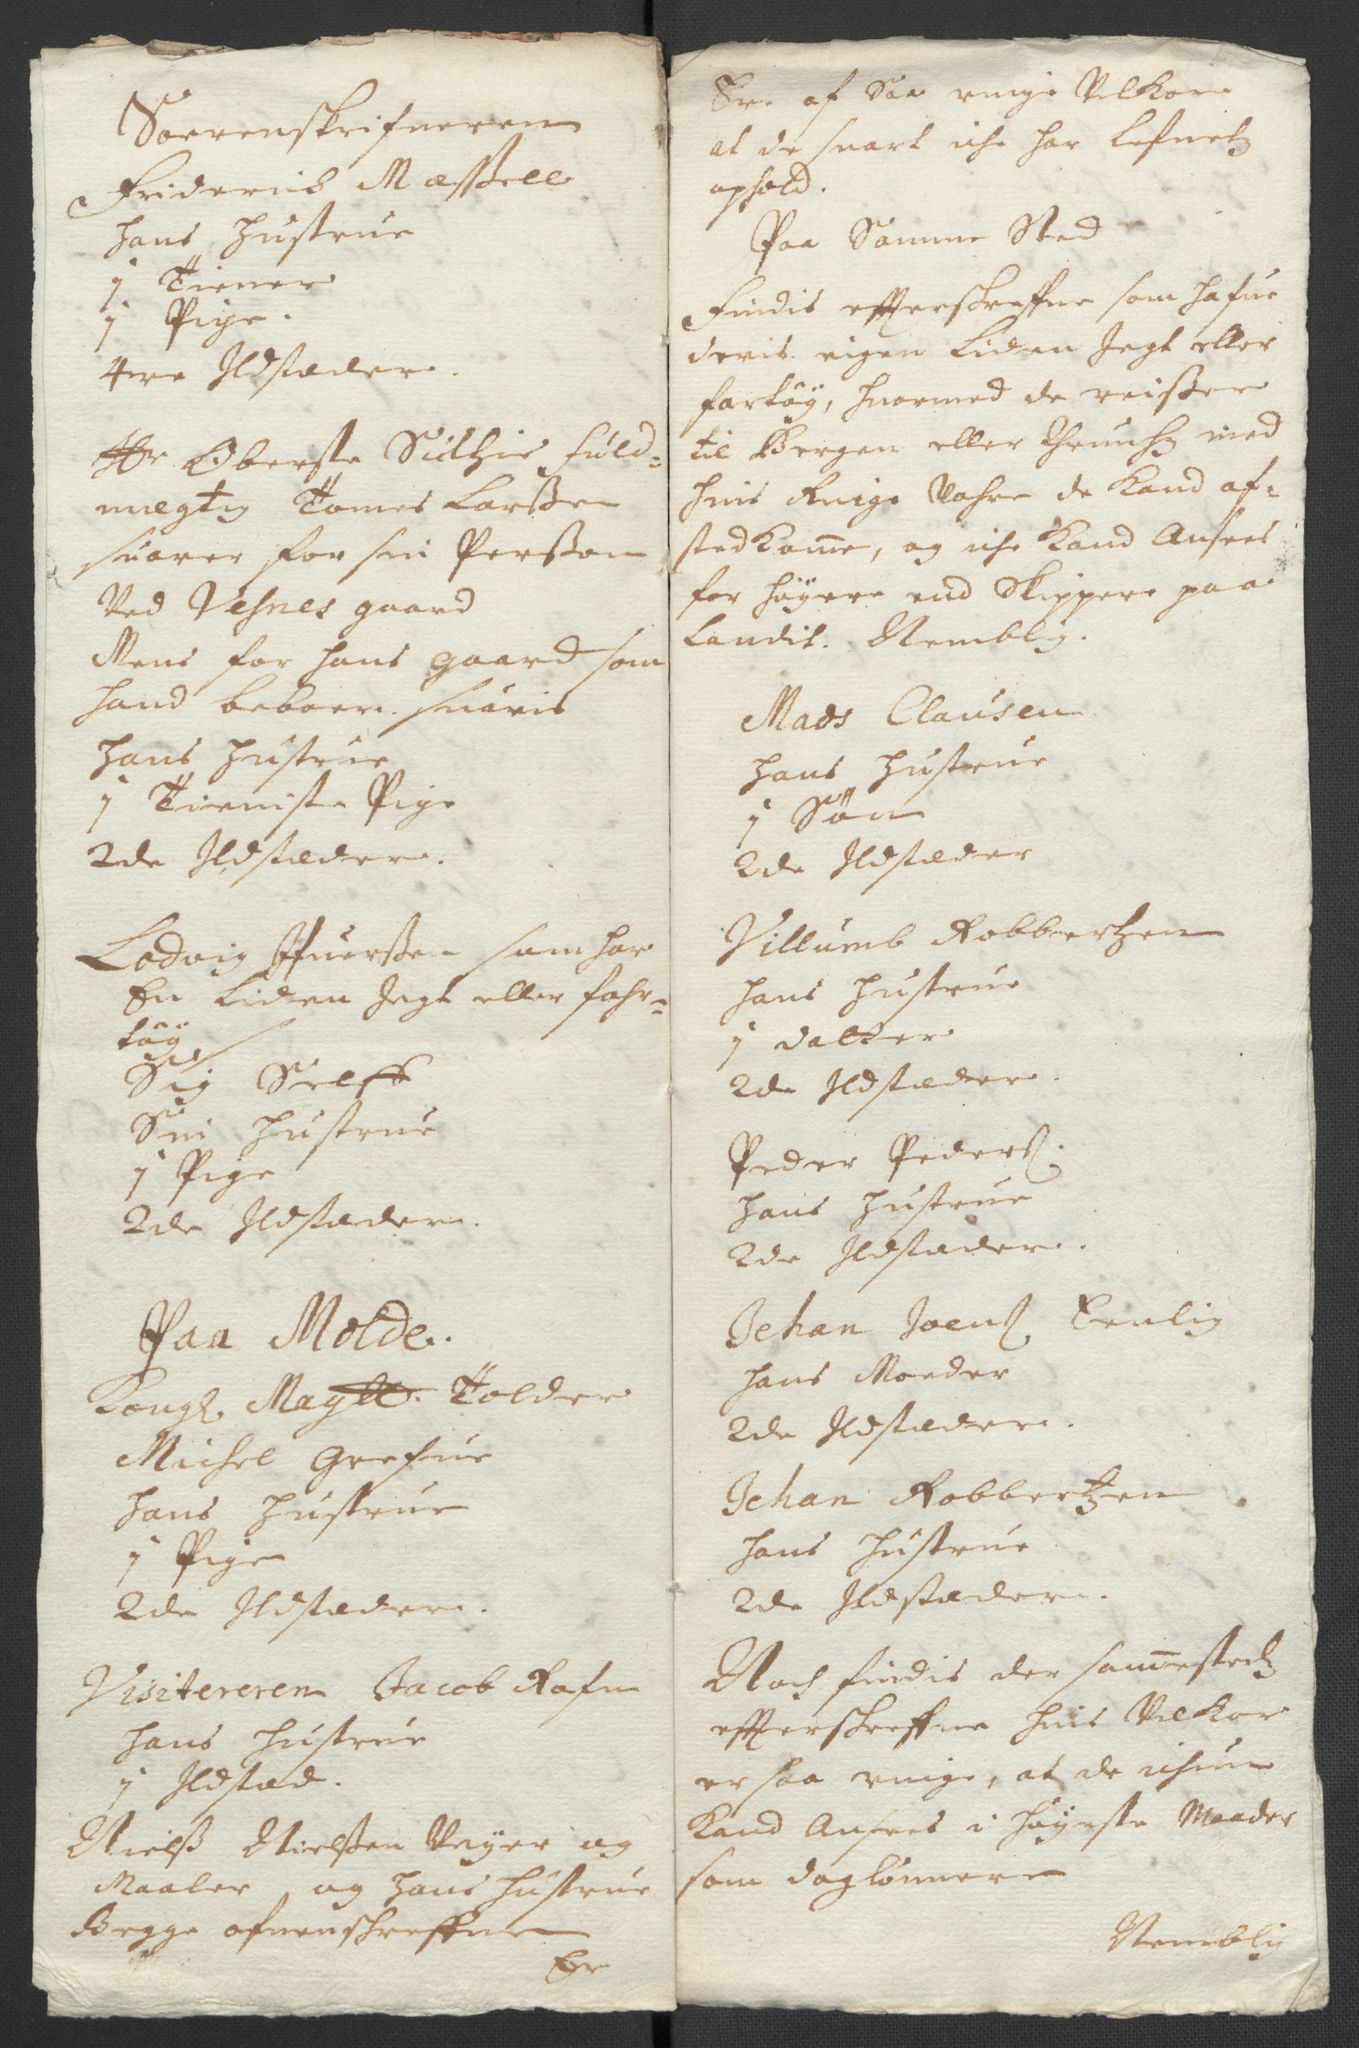 Sorenskrifueren
Friderich Mæssell
hans hustrue
1 Tiener
1 Pige.
4re Ildstæder.
Hr Oberste Sidtzis fuld-
megtig Tomes Larssen
suarer for sin Persson
Ved Vesnes gaard
Mens for hans gaard som
hand beboer. suaris
hans hustrue
1 Tieniste Pige
2de Ildstæder.
Lodvig Ifuerssen som har
En liden Jegt eller fahr-
tøy
Sig Selff
Sin hustrue
1 Pige
2de Ildstæder.
Paa Molde.
Kongl. Maytt. Tolder
Michel Grefue
hans hustrue
1 Pige
2de Ildstæder.
Visitereren Jacob Rafn
hans hustrue
1 Ildstæd.
Nielss Nielssen Veyer og
Maaler og hans hustrue
Begge ofuenschreffne
Er
Ere af Saa ringe Velkor
at de snart iche har Lefnetz
ophold.
Paa Samme Sted
Findis effterschreffne som hafue
deris eigen Liden Jegt eller
fartøy, huormed de reisser
til Bergen eller Thrunhj med
huis Ringe Vahre de kand af-
sted komme, og iche kand Ansees
for høyere end Skippere paa
Landit. Nemblig.
Mads Clausen
hans hustrue
1 Søn
2de Ildstæder
Villumb Robbertzen
hans hustrue
1 datter
2de Ildstæder.
Peder Peders.
hans hustrue
2de Ildstæder.
Jehan Joens. Eenlig
hans Moeder
2de Ildstæder.
Jehan Robbertzen
hans hustrue
2de Ildstæder.
Noch findis der sammestedz
effterschreffne huis Velkor
er saa ringe, at de ichun
kand Ansees i høyeste Maader
som daglønnere
Nemblig